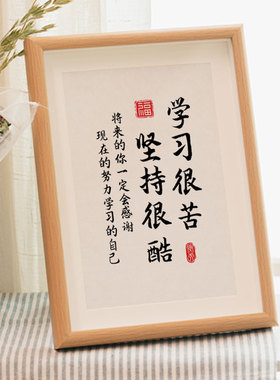 学习很苦
坚持很酷
将来的你一定会感谢
现在的努力学习的自己
福